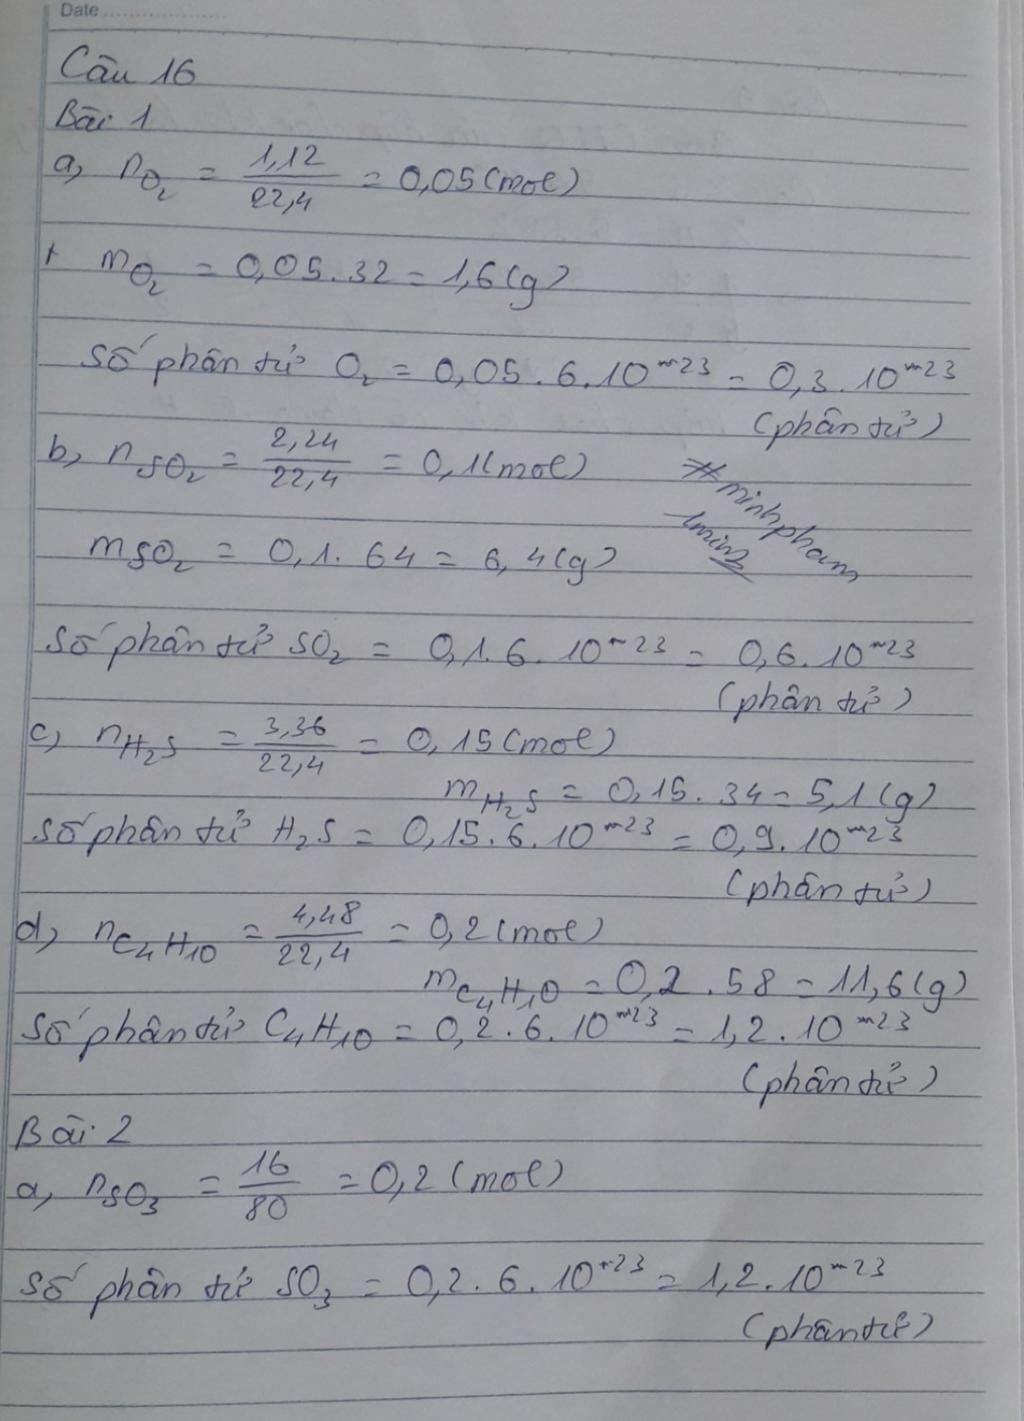 Date
Câu 16
Bài 1
a, nO₂ = 1,12/22,4 = 0,05 (mol)
+ mO₂ = 0,05 . 32 = 1,6 (g)
Số phân tử O₂ = 0,05 . 6 . 10^m23 = 0,3 . 10^m23
(phân tử)
b, nSO₂ = 2,24/22,4 = 0,1 (mol)
#minhpham
mSO₂ = 0,1 . 64 = 6,4 (g)
Số phân tử SO₂ = 0,1 . 6 . 10^m23 = 0,6 . 10^m23
(phân tử)
c, nH₂S = 3,36/22,4 = 0,15 (mol)
mH₂S = 0,15 . 34 = 5,1 (g)
Số phân tử H₂S = 0,15 . 6 . 10^m23 = 0,9 . 10^m23
(phân tử)
d, nC₄H₁₀ = 4,48/22,4 = 0,2 (mol)
mC₄H₁₀ = 0,2 . 58 = 11,6 (g)
Số phân tử C₄H₁₀ = 0,2 . 6 . 10^m23 = 1,2 . 10^m23
(phân tử)
Bài 2
a, nSO₃ = 16/80 = 0,2 (mol)
Số phân tử SO₃ = 0,2 . 6 . 10^m23 = 1,2 . 10^m23
(phân tử)